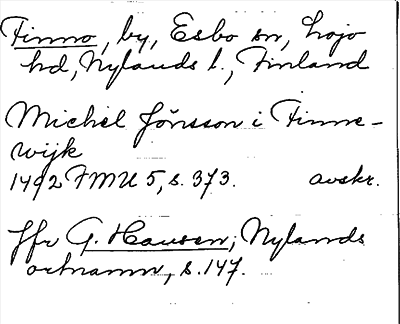 Finno, by, Esbo sn, Lojo
hd, Nylands l., Finland
Michel Jönsson i Finne-
wijk
1492 FMU 5, s. 373. avskr.
Jfr G. Hausen, Nylands
ortnamn, s. 147.